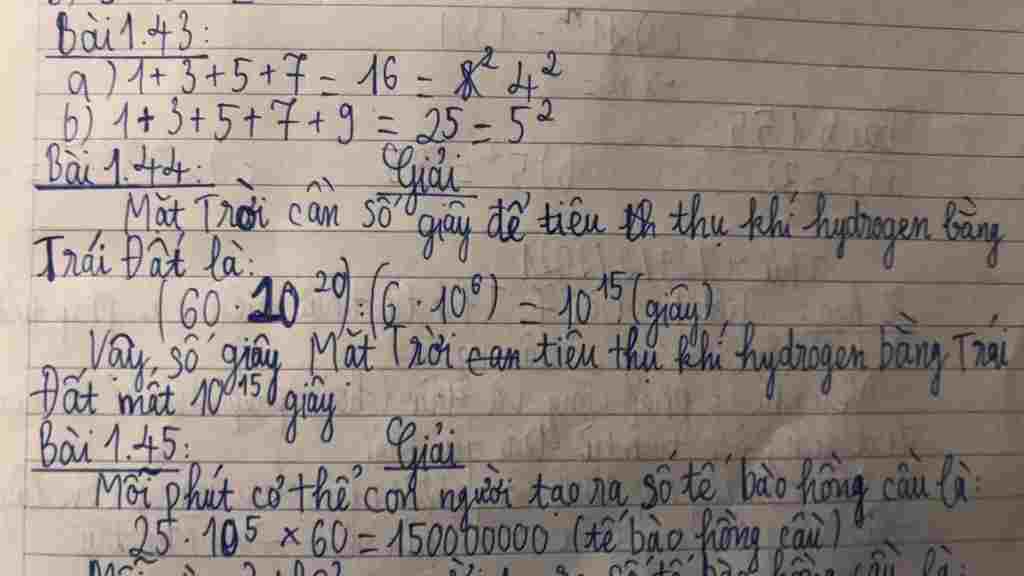 Bài 1.43:
a) 1 + 3 + 5 + 7 = 16 = 8² 4²
b) 1 + 3 + 5 + 7 + 9 = 25 = 5²
Bài 1.44: Giải
Mặt Trời cần số giây để tiêu th thụ khí hydrogen bằng
Trái Đất là:
(60 · 10²⁰) : (6 · 10⁶) = 10¹⁵ (giây)
Vậy, số giây Mặt Trời can tiêu thụ khí hydrogen bằng Trái
Đất mất 10¹⁵ giây
Bài 1.45: Giải
Mỗi phút cơ thể con người tạo ra số tế bào hồng cầu là:
25 · 10⁵ × 60 = 150000000 (tế bào hồng cầu)